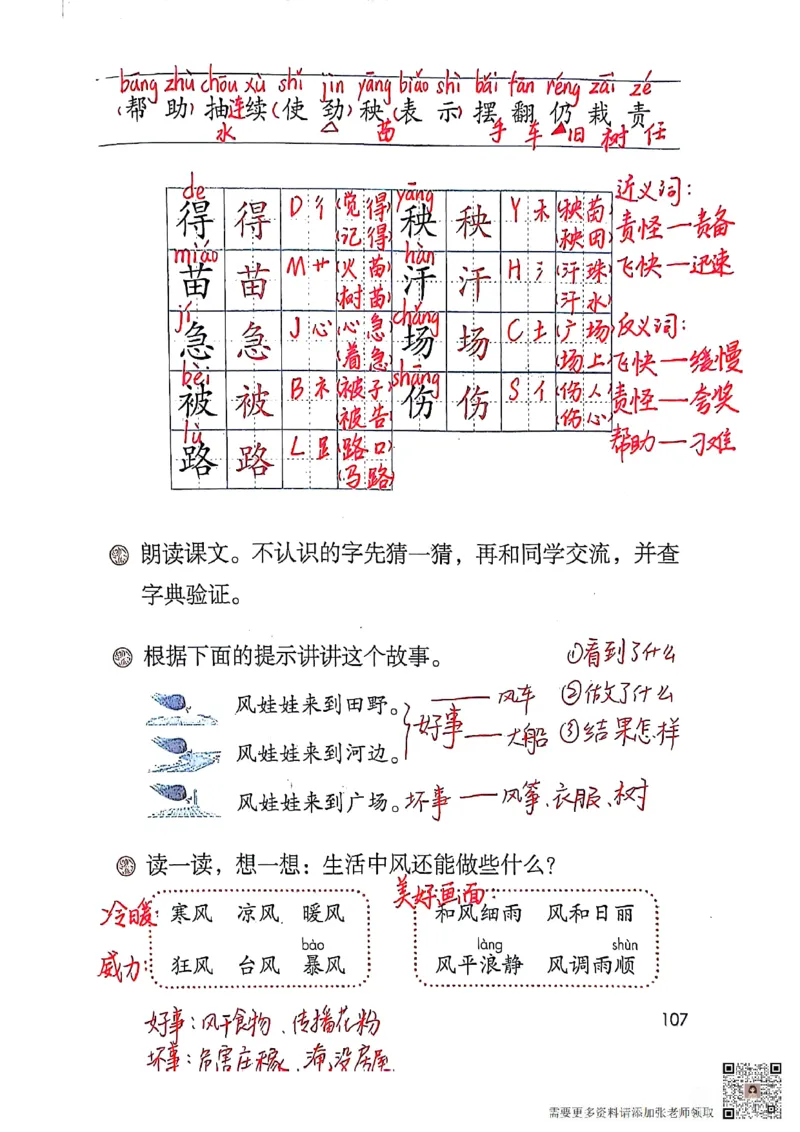 bāng zhù chōu xù shǐ jìn yāng biǎo shì bǎi fān réng zāi zé
(帮 助) 抽 连续 (使 劲) 秧 (表 示) 摆 翻 仍 栽 责
水 △ 苗 手 车 ▲旧 树 任
de yāng
得 得 D 彳 (觉 得) (记 得) 秧 秧 Y 禾 (秧 苗) (秧 田)
miáo hàn
苗 苗 M 艹 (火 苗) (树 苗) 汗 汗 H 氵 (汗 珠) (汗 水)
jí chǎng
急 急 J 心 (心 急) (着 急) 场 场 C 土 (广 场) (场 上)
bèi shāng
被 被 B 衤 (被 子) (被 告) 伤 伤 S 亻 (伤 人) (伤 心)
lù
路 路 L 𧾷 (路 口) (马 路)
近义词:
责怪—责备
飞快—迅速
反义词:
飞快—缓慢
责怪—夸奖
帮助—刁难
朗读课文。不认识的字先猜一猜，再和同学交流，并查
字典验证。
根据下面的提示讲讲这个故事。 ①看到了什么
风娃娃来到田野。 —— 风车 ②做了什么
好事 —— 大船 ③结果怎样
风娃娃来到河边。
风娃娃来到广场。坏事——风筝、衣服、树
读一读，想一想：生活中风还能做些什么？
美好画面:
冷暖: 寒风 凉风 暖风 和风细雨 风和日丽
bào làng shùn
威力: 狂风 台风 暴风 风平浪静 风调雨顺
好事:风干食物、传播花粉
107
坏事:危害庄稼、淹没房屋
需要更多资料请添加张老师领取